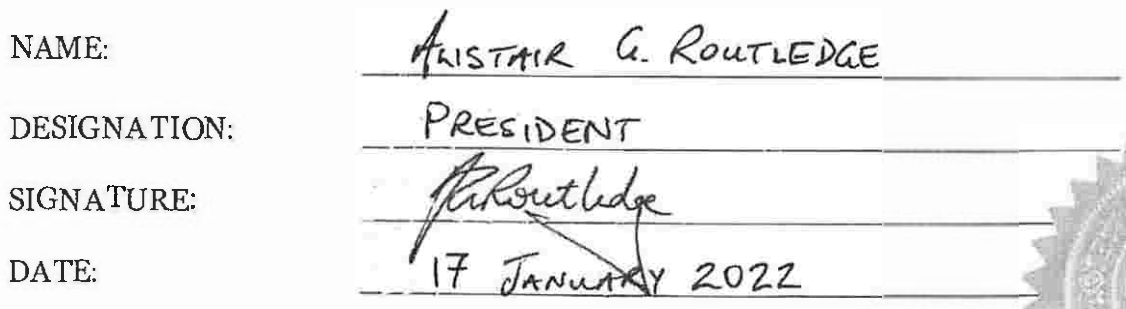 NAME: ALISTAIR G. ROUTLEDGE
DESIGNATION: PRESIDENT
SIGNATURE: AGRoutledge
DATE: 17 JANUARY 2022